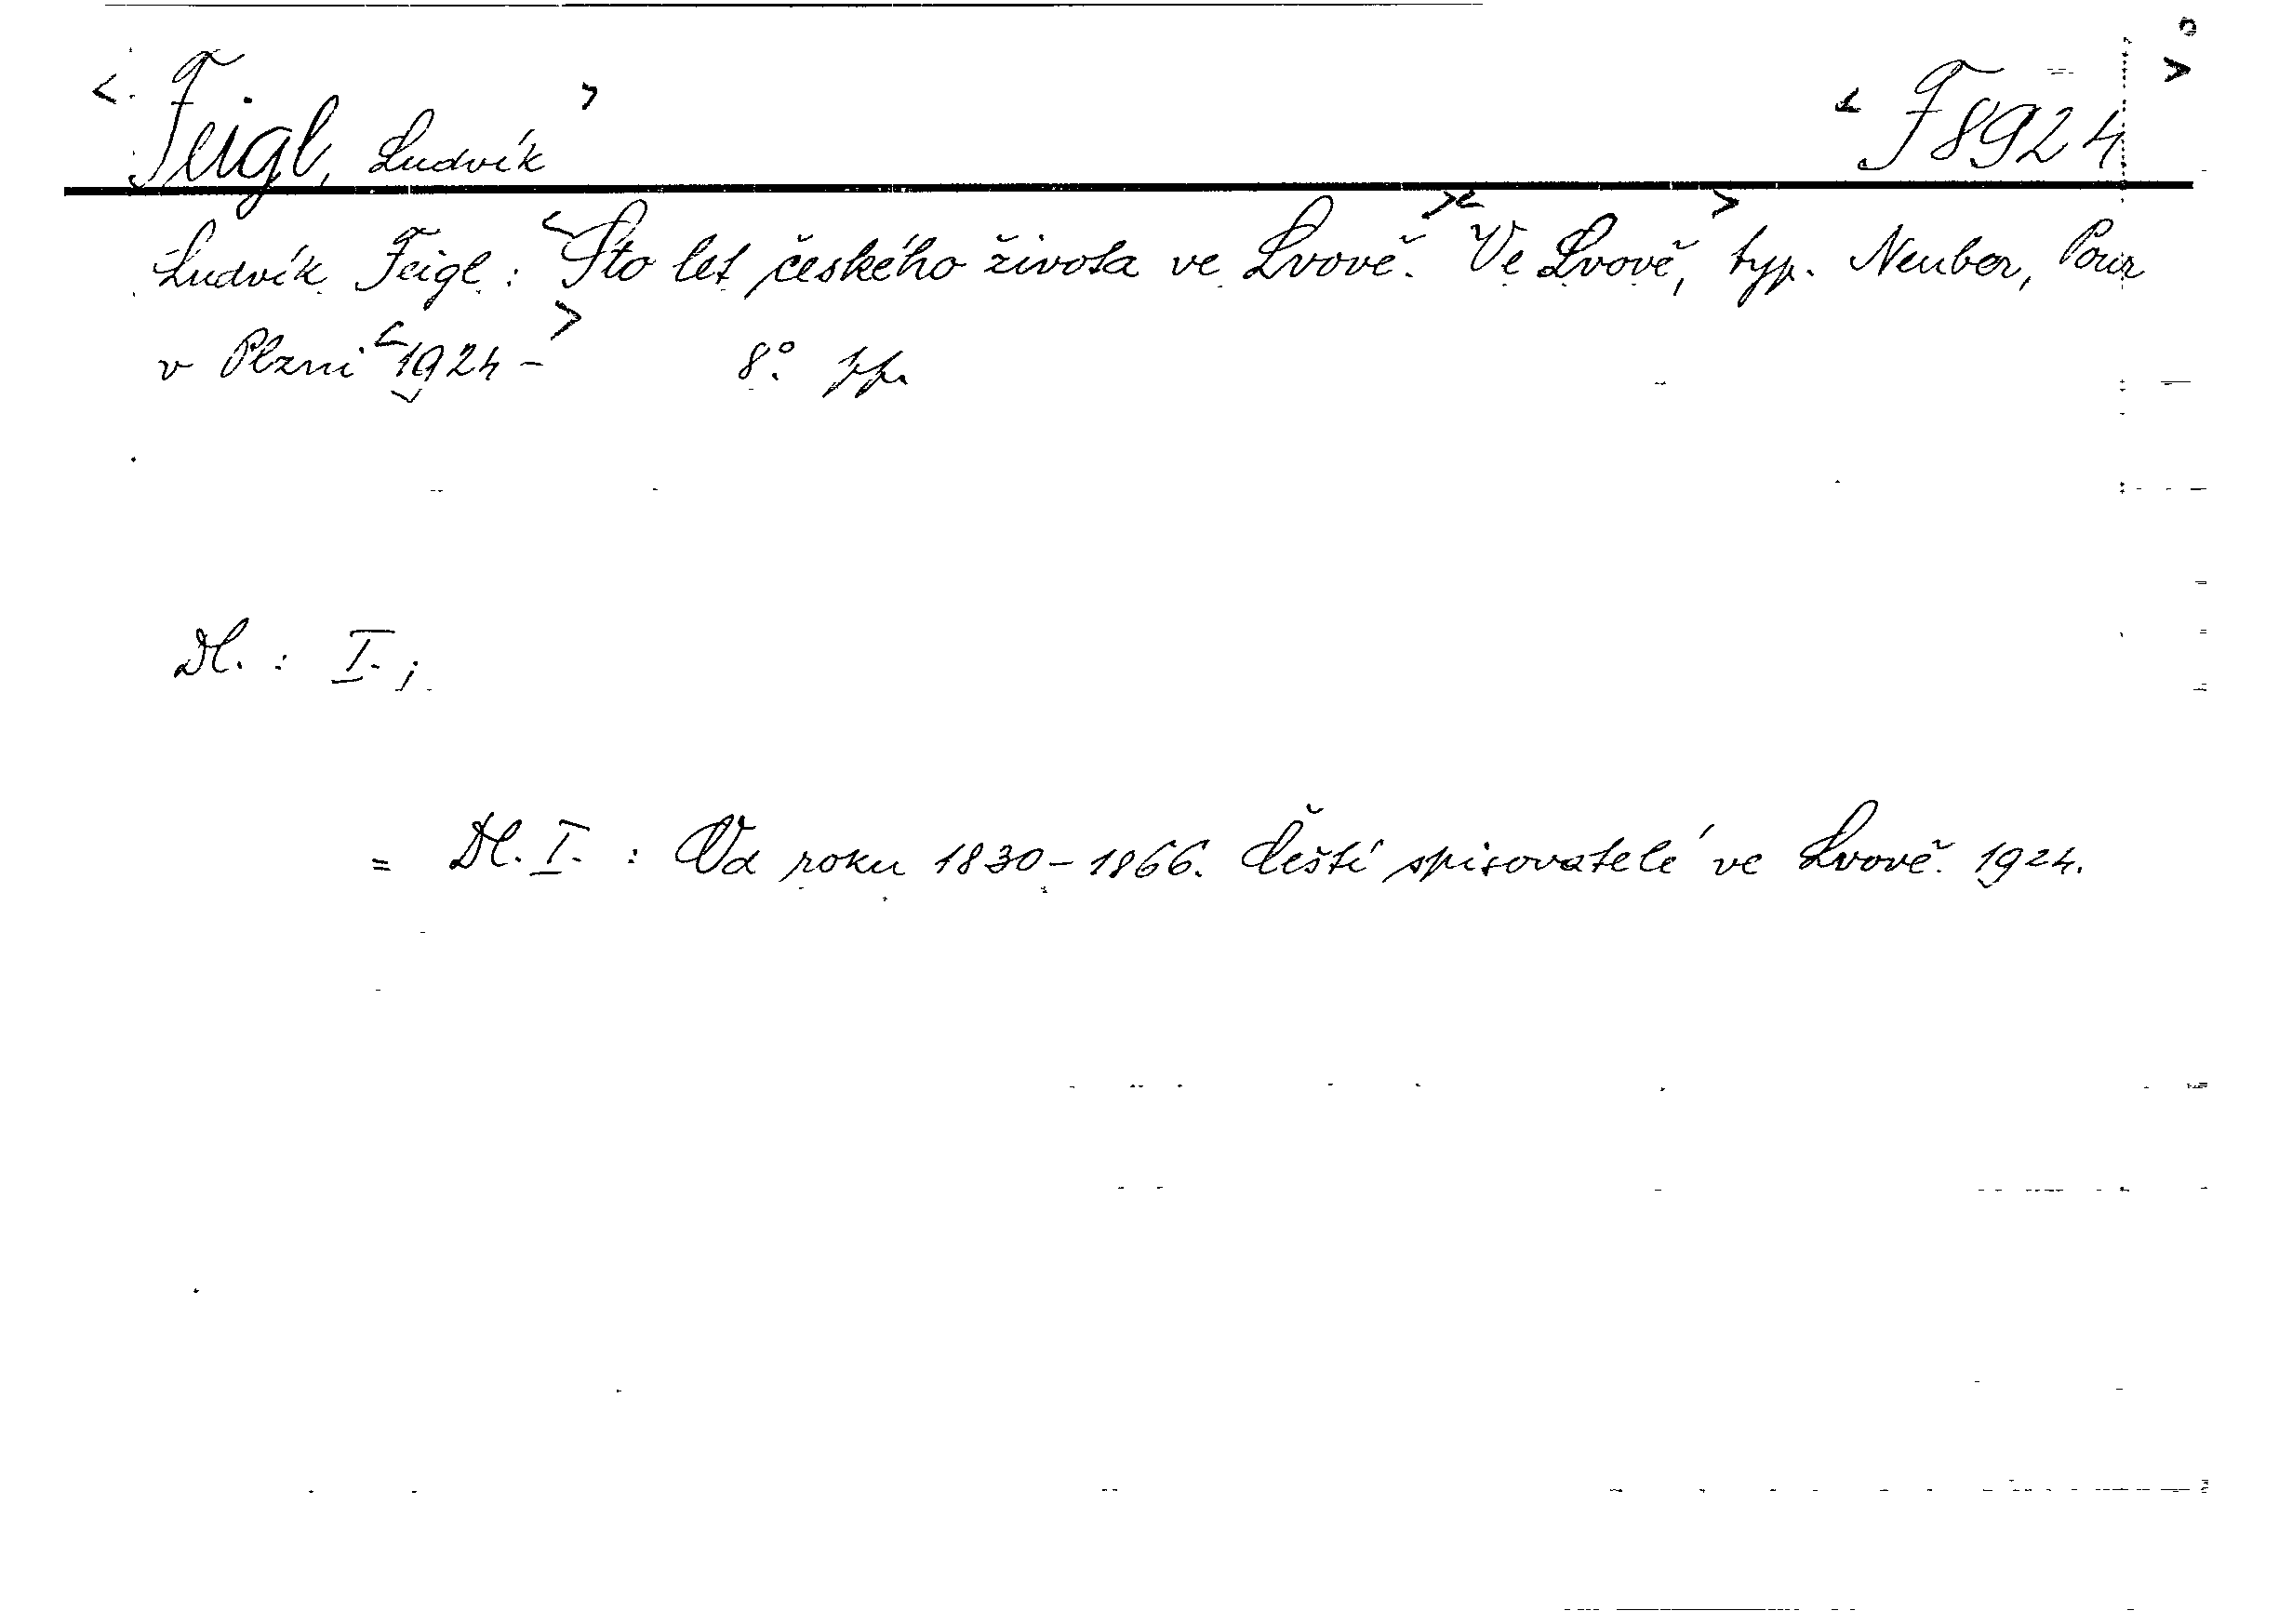 < Feigl, Ludvík > < F 8924 >
Ludvík Feigl : <Sto let českého života ve Lvově.> <Ve Lvově,> typ. Neuber, Pour
v Plzni <1924 -> 8°. pp.
Dl. : I. ;
= Dl. I. : Od roku 1830 - 1866. Čeští spisovatelé ve Lvově. 1924.